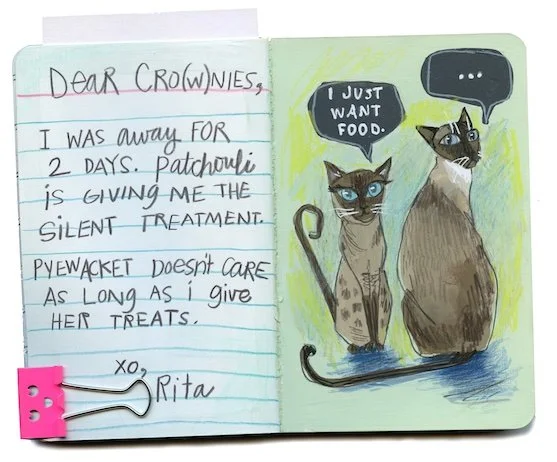 Dear Cro(w)nies,
I was away for
2 days. Patchouli
is giving me the
silent treatment.
Pyewacket doesn't care
as long as i give
her treats.
xo,
Rita
I JUST
WANT
FOOD.
...